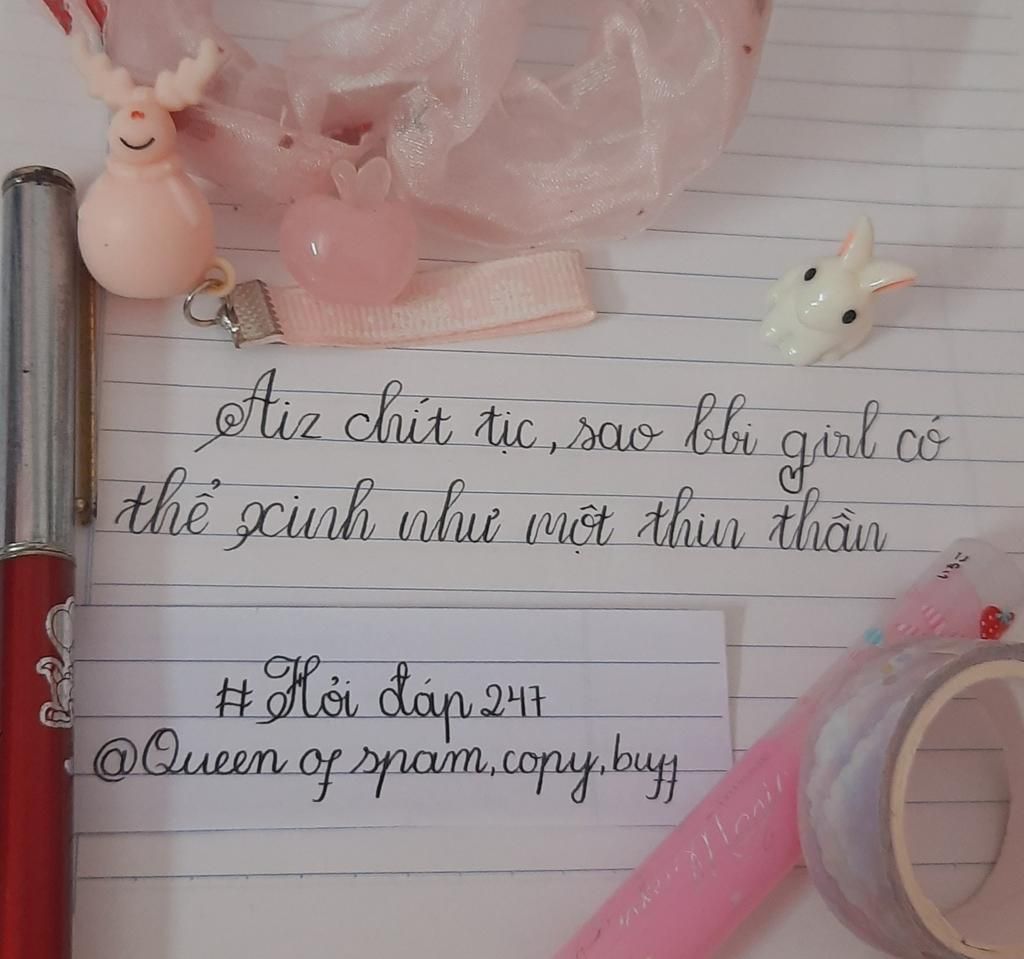 Aiz chít tịc, sao bbi girl có
thể xinh như một thin thần
#Hỏi đáp 247
@Queen of spam, copy, buff